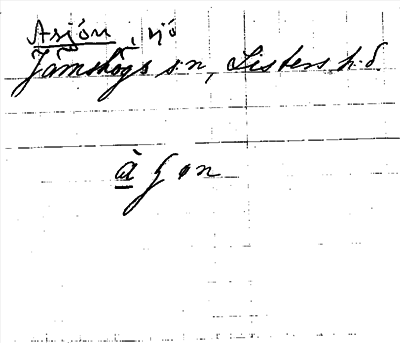 Asjön, sjö
Jämshögs sn, Listers hd.